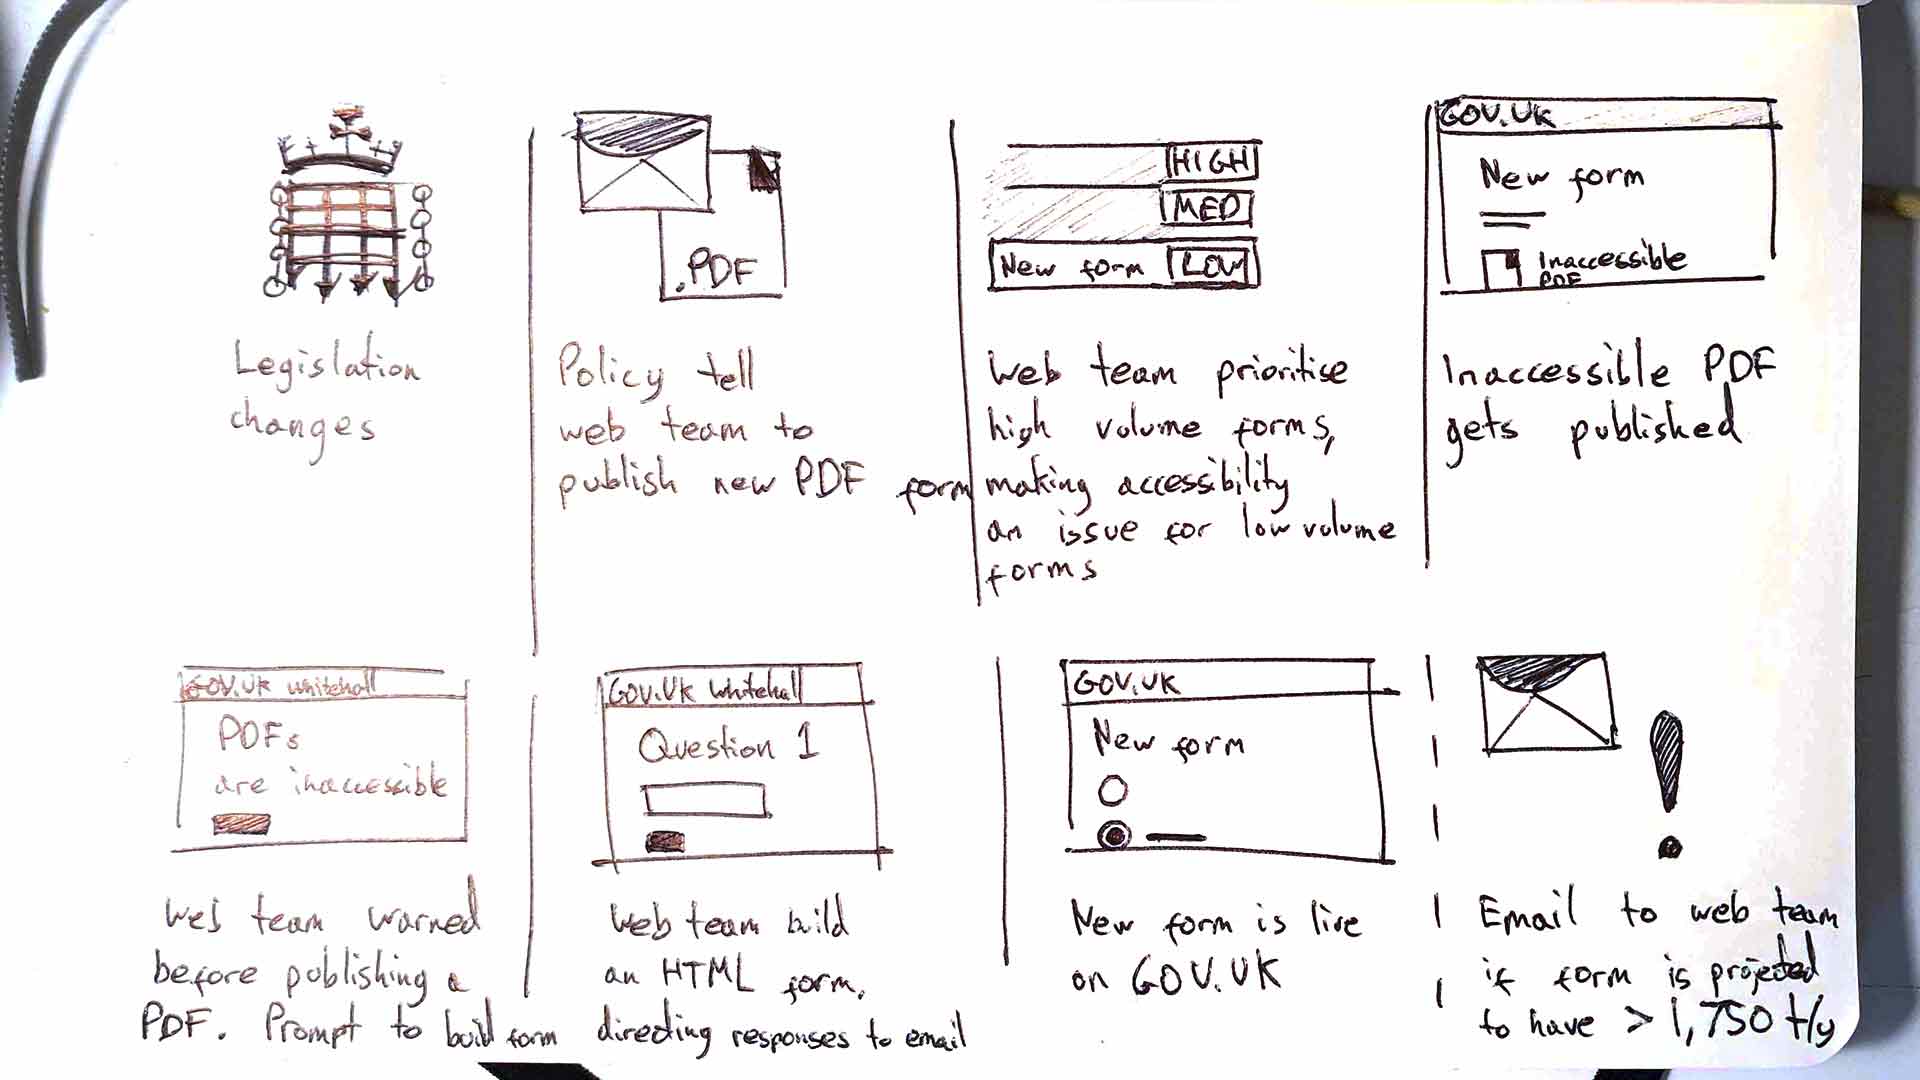 Legislation
changes
.PDF
Policy tell
web team to
publish new PDF form
HIGH
MED
New form LOW
Web team prioritise
high volume forms,
making accessibility
an issue for low volume
forms
GOV.UK
New form
Inaccessible
PDF
Inaccessible PDF
gets published
GOV.UK Whitehall
PDFs
are inaccessible
Web team warned
before publishing a
PDF. Prompt to build form
GOV.UK Whitehall
Question 1
Web team build
an HTML form,
directing responses to email
GOV.UK
New form
New form is live
on GOV.UK
!
Email to web team
if form is projected
to have > 1,750 t/y